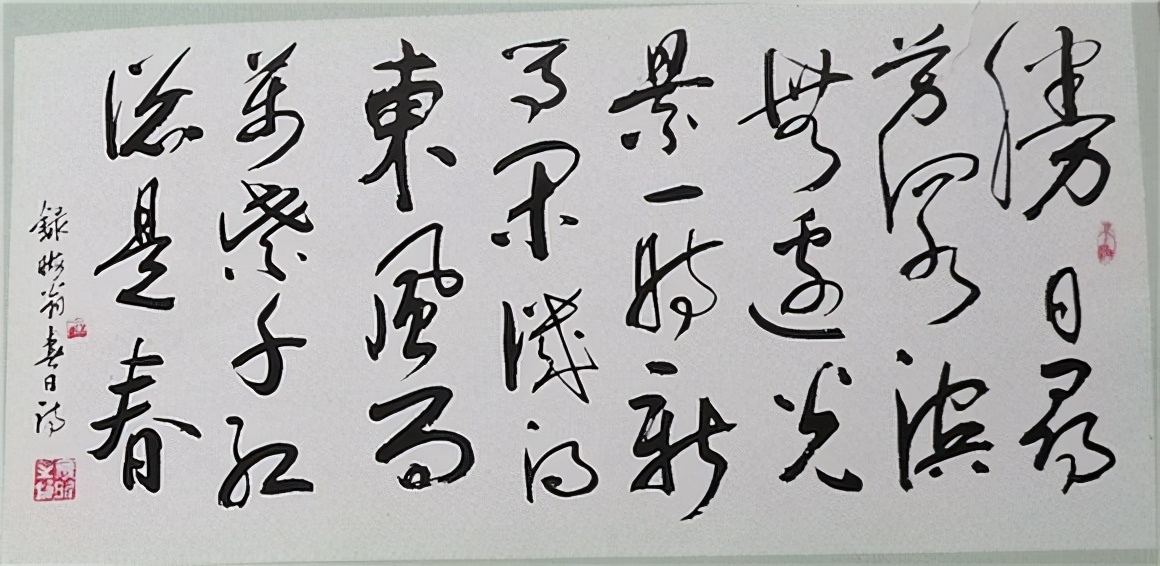 勝日尋
芳泗水濱
無邊光
景一時新
等閑識得
東風面
萬紫千紅
總是春
録晦翁春日詩